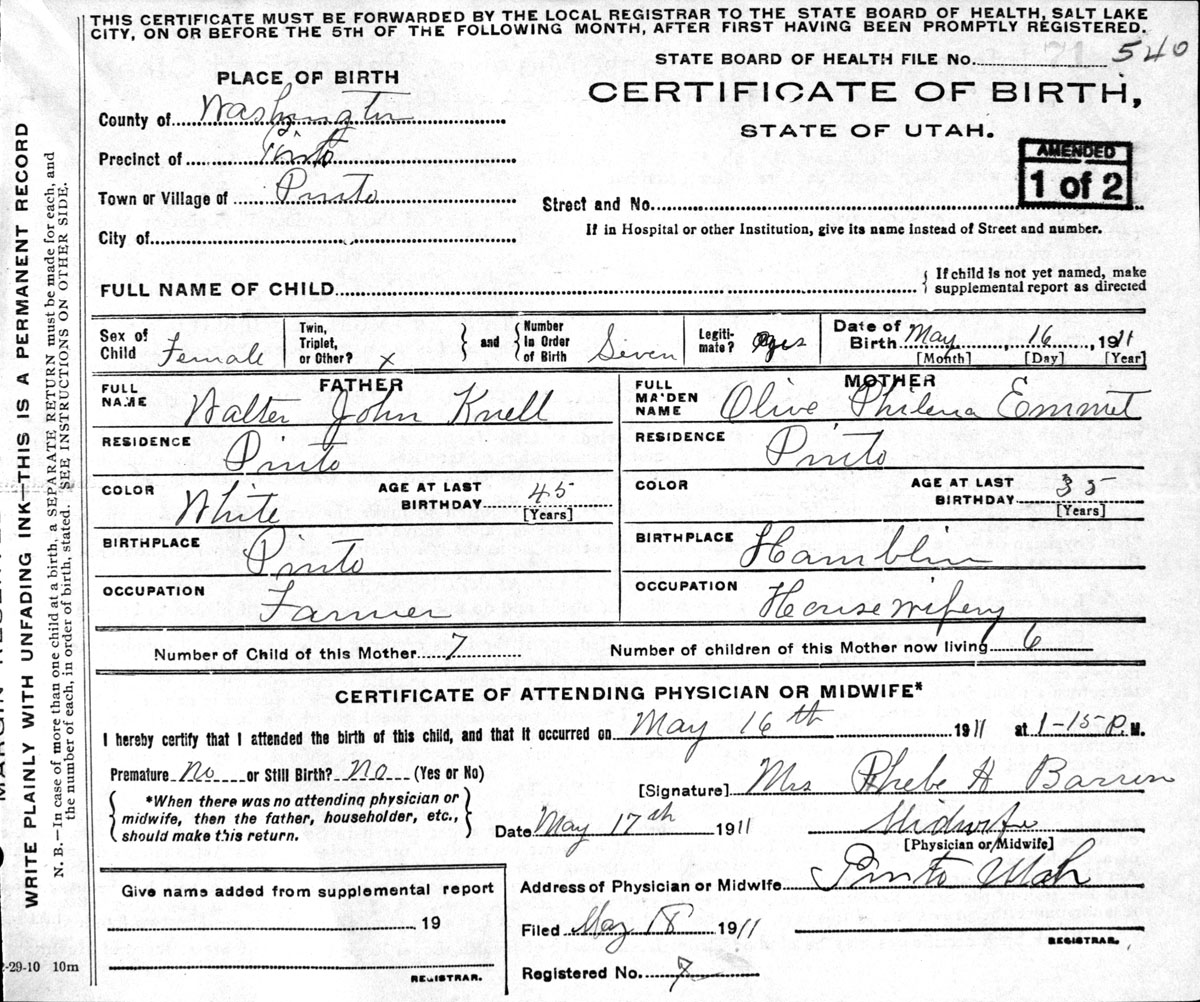 THIS CERTIFICATE MUST BE FORWARDED BY THE LOCAL REGISTRAR TO THE STATE BOARD OF HEALTH, SALT LAKE
CITY, ON OR BEFORE THE 5TH OF THE FOLLOWING MONTH, AFTER FIRST HAVING BEEN PROMPTLY REGISTERED.
STATE BOARD OF HEALTH FILE No. 71 540
PLACE OF BIRTH
CERTIFICATE OF BIRTH,
STATE OF UTAH.
County of Washington
AMENDED
1 of 2
Precinct of Pinto
Town or Village of Pinto
Street and No.
City of
If in Hospital or other Institution, give its name instead of Street and number.
FULL NAME OF CHILD
{ If child is not yet named, make
supplemental report as directed
Sex of Child Female
Twin, Triplet, or Other? x } and { Number in Order of Birth Seven
Legiti-mate? yes
Date of Birth May 16, 1911
[Month] [Day] [Year]
FATHER
FULL NAME Walter John Knell
MOTHER
FULL MAIDEN NAME Olive Philena Emmet
RESIDENCE Pinto
RESIDENCE Pinto
COLOR White AGE AT LAST BIRTHDAY 45 [Years]
COLOR AGE AT LAST BIRTHDAY 35 [Years]
BIRTHPLACE Pinto
BIRTHPLACE Hamblin
OCCUPATION Farmer
OCCUPATION Housewifery
Number of Child of this Mother 7 Number of children of this Mother now living 6
CERTIFICATE OF ATTENDING PHYSICIAN OR MIDWIFE*
I hereby certify that I attended the birth of this child, and that it occurred on May 16th 1911 at 1-15 P. M.
Premature No or Still Birth? No (Yes or No)
{ *When there was no attending physician or
midwife, then the father, householder, etc.,
should make this return. }
[Signature] Mrs Phebe H Barren
Date May 17th 1911 Midwife
[Physician or Midwife]
Address of Physician or Midwife Pinto Utah
Give name added from supplemental report
19
REGISTRAR.
Filed May 18 1911
REGISTRAR.
Registered No. 7
2-29-10 10m
WRITE PLAINLY WITH UNFADING INK—THIS IS A PERMANENT RECORD
N. B.—In case of more than one child at a birth, a SEPARATE RETURN must be made for each, and
the number of each, in order of birth, stated. SEE INSTRUCTIONS ON OTHER SIDE.